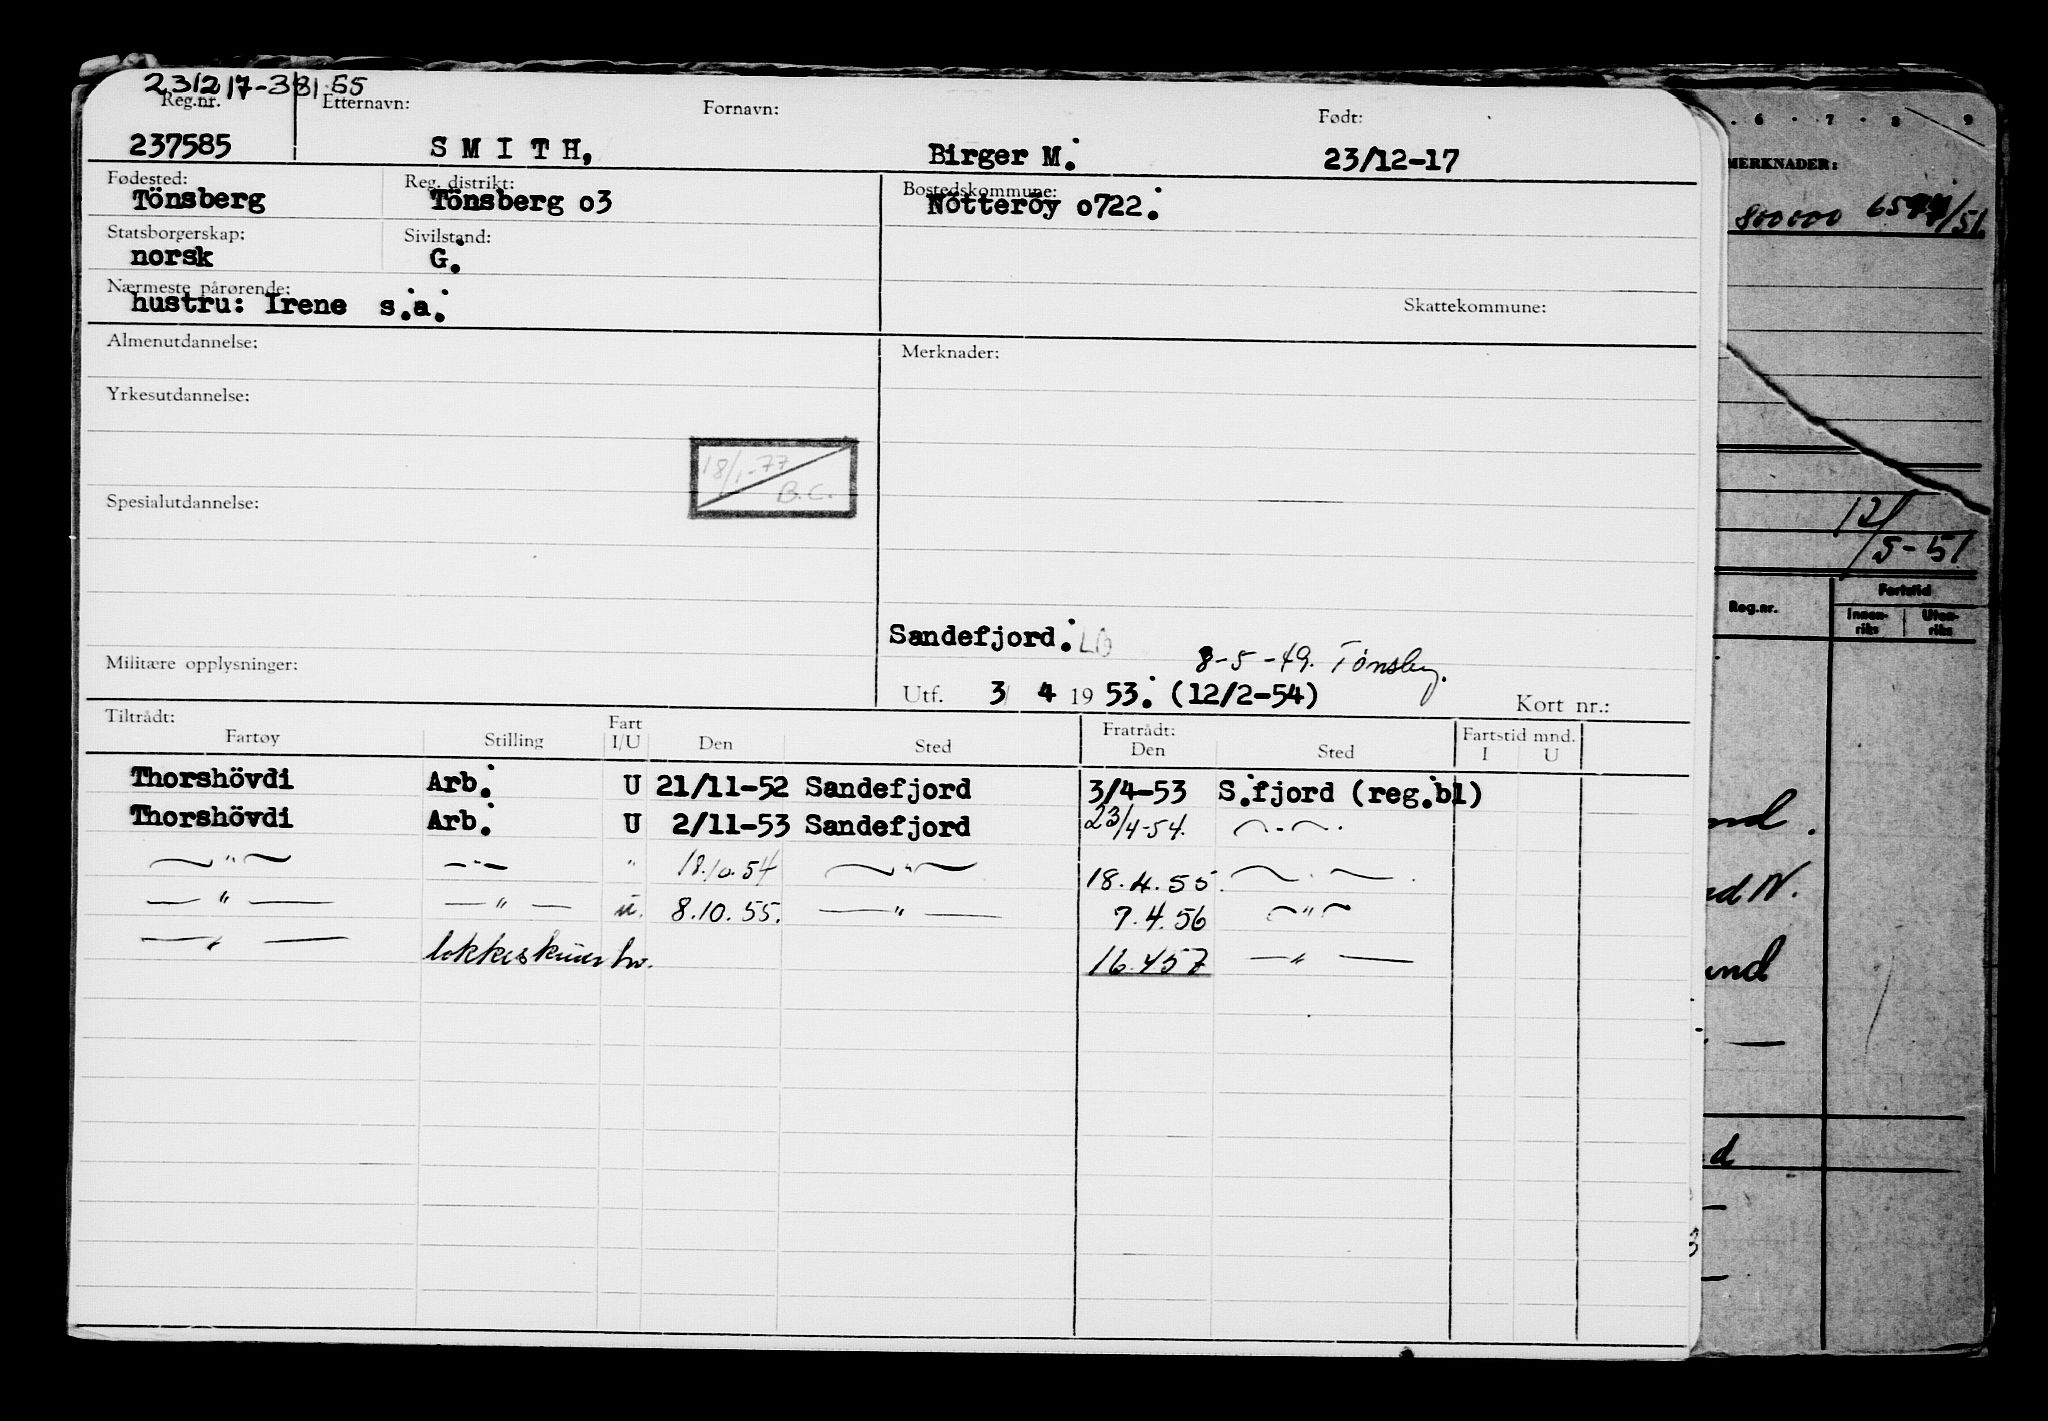 231217-38155
Reg.nr. Etternavn: Fornavn: Født:
237585 S M I T H, Birger M. 23/12-17
Fødested: Reg. distrikt: Bostedskommune:
Tönsberg Tönsberg o3 Nötteröy o722.
Statsborgerskap: Sivilstand:
norsk G.
Nærmeste pårørende: Skattekommune:
hustru: Irene s.a.
Almenutdannelse: Merknader:
Yrkesutdannelse:
18/1-77
B.C.
Spesialutdannelse:
Sandefjord.
Militære opplysninger: 8-5-49. Tönsberg.
Utf. 3 4 19 53. (12/2-54) Kort nr.:
Tiltrådt: Fratrådt: Fartstid mnd.
Fartøy Stilling Fart I/U Den Sted Den Sted I U
Thorshövdi Arb. U 21/11-52 Sandefjord 3/4-53 S.fjord (reg.bl)
Thorshövdi Arb. U 2/11-53 Sandefjord 23/4-54. — - —.
— " — — " — " 18.10.54 — " — 18.4.55. — . — .
— " — — " — u. 8.10.55. — " — 7.4.56 — " —
— " — 16.457 — " —
6 . 7 . 8 9
MERKNADER:
800000
12/5-51
Reg.nr. Fartstid
Innen-riks Uten-riks